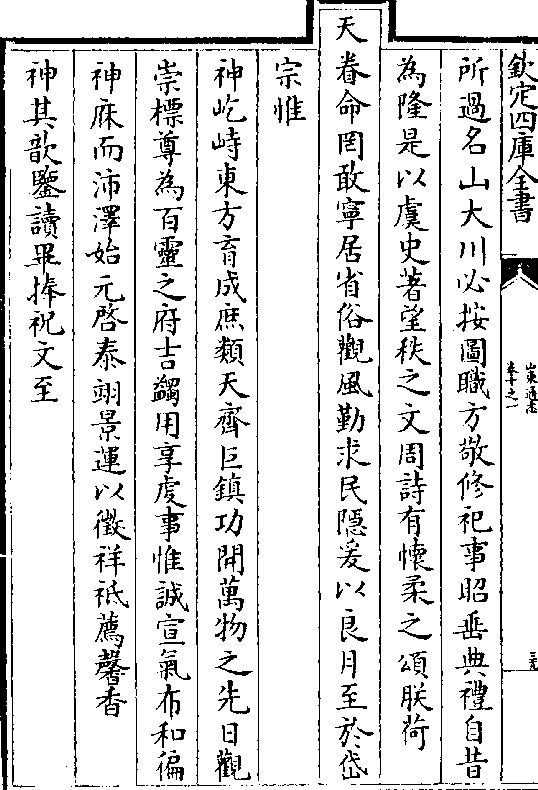 欽定四庫全書
山東通志
卷十之一
所過名山大川必按圖職方敬修祀事昭垂典禮自昔
為隆是以虞史著望秩之文周詩有懷柔之頌朕荷
天眷命罔敢寧居省俗觀風勤求民隱爰以良月至於岱
宗惟
神屹峙東方育成庶類天齊巨鎮功開萬物之先日觀
崇標尊為百靈之府吉蠲用享虔事惟誠宣氣布和徧
神庥而沛澤始元啓泰翊景運以徵祥祗薦馨香
神其歆鑒讀畢捧祝文至